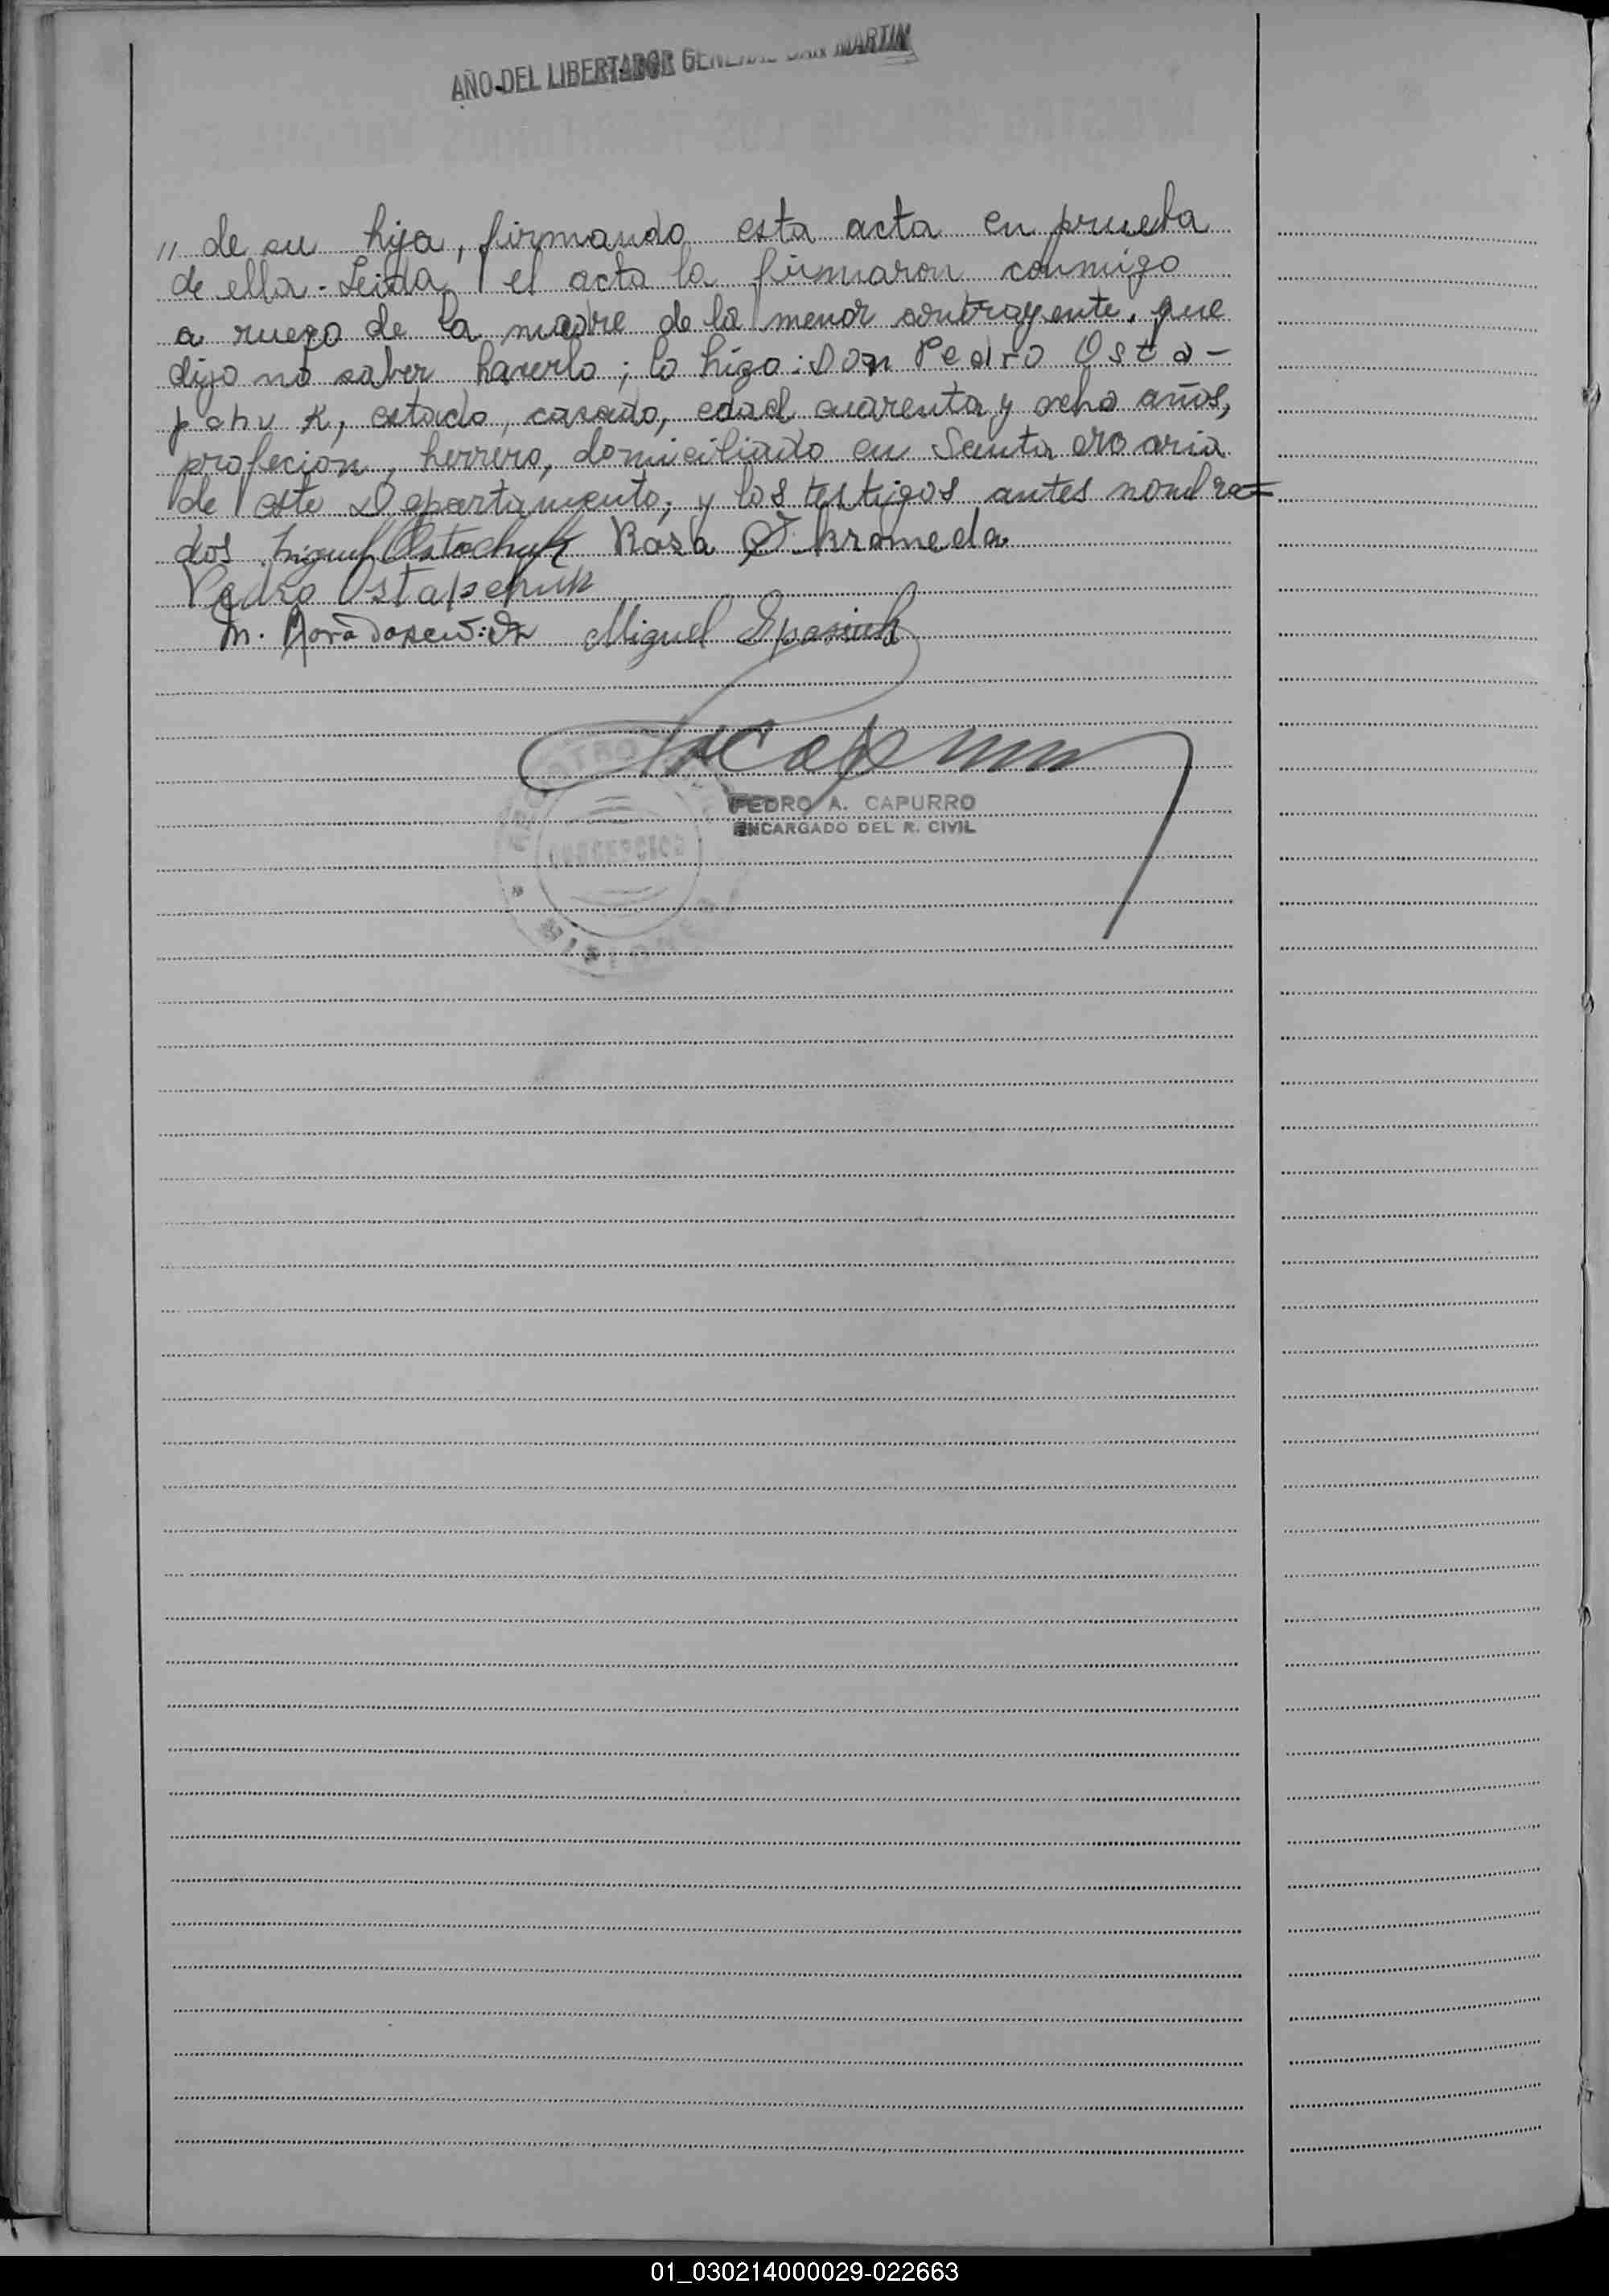 AÑO DEL LIBERTADOR GENERAL SAN MARTIN
" de su hija, firmando esta acta en prueba
de ella.- Leida el acta la firmaron conmigo
a ruego de la madre de la menor contrayente, que
dijo no saber hacerlo; lo hizo: Don Pedro Osta-
pchuk, estado, casado, edad cuarenta y ocho años,
profecion, herrero, domiciliado en Santa Maria
de este Departamento; y los testigos antes nombra=
dos. Miguel Ostachuk Rosa Kromeda
Pedro Ostapchuk
M. Miguel Spasiuk
PEDRO A. CAPURRO
ENCARGADO DEL R. CIVIL
REGISTRO
CONCEPCION
MISIONES
01_030214000029-022663